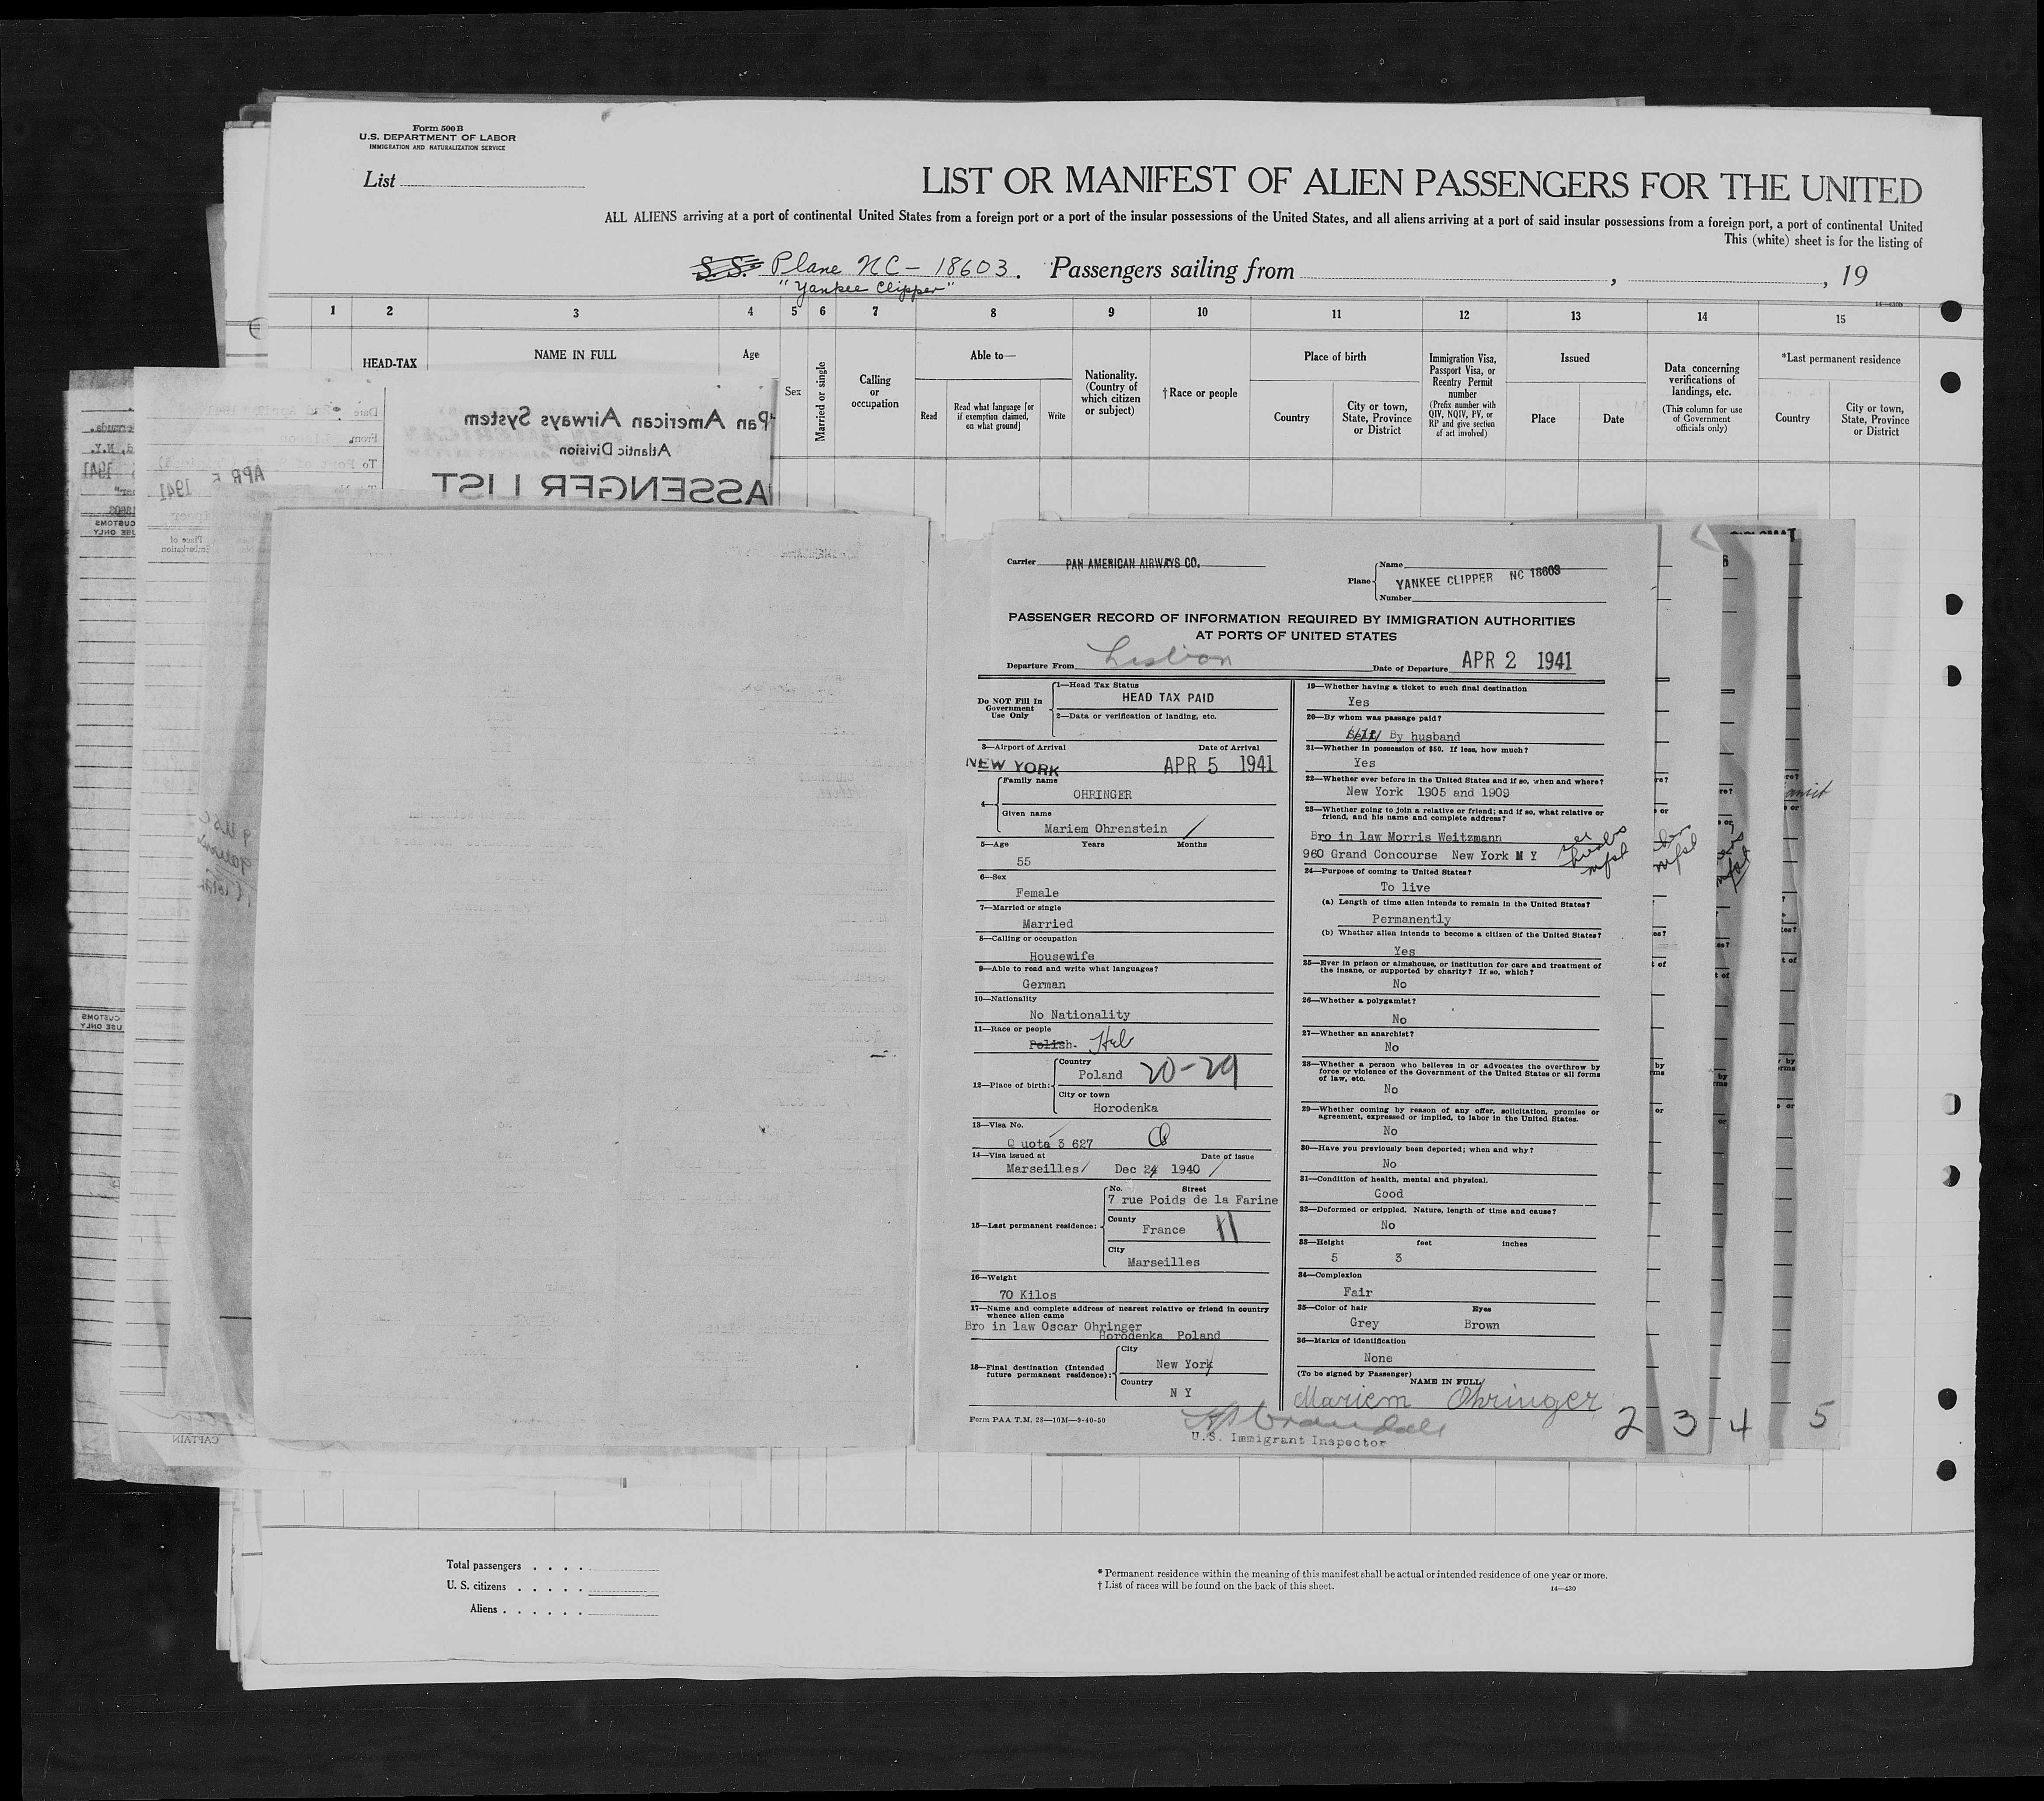 Form 500 B
U.S. DEPARTMENT OF LABOR
IMMIGRATION AND NATURALIZATION SERVICE
List
LIST OR MANIFEST OF ALIEN PASSENGERS FOR THE UNITED
ALL ALIENS arriving at a port of continental United States from a foreign port or a port of the insular possessions of the United States, and all aliens arriving at a port of said insular possessions from a foreign port, a port of continental United
This (white) sheet is for the listing of
S.S. Plane NC-18603. Passengers sailing from , , 19
"Yankee Clipper"
1 2 3 4 5 6 7 8 9 10 11 12 13 14 15
HEAD-TAX
NAME IN FULL
Age
Sex
Married or single
Calling
or
occupation
Able to—
Read
Read what language [or
if exemption claimed,
on what ground]
Write
Nationality.
(Country of
which citizen
or subject)
† Race or people
Place of birth
Country
City or town,
State, Province
or District
Immigration Visa,
Passport Visa, or
Reentry Permit
number
(Prefix number with
QIV, NQIV, PV, or
RP and give section
of act involved)
Issued
Place
Date
Data concerning
verifications of
landings, etc.
(This column for use
of Government
officials only)
*Last permanent residence
Country
City or town,
State, Province
or District
Pan American Airways System
Atlantic Division
ASSENGER LIST
Carrier PAN AMERICAN AIRWAYS CO.
Plane Name
YANKEE CLIPPER NC 18603
Number
PASSENGER RECORD OF INFORMATION REQUIRED BY IMMIGRATION AUTHORITIES
AT PORTS OF UNITED STATES
Departure From Lisbon Date of Departure APR 2 1941
Do NOT Fill In
Government
Use Only
1—Head Tax Status
HEAD TAX PAID
2—Data or verification of landing, etc.
3—Airport of Arrival Date of Arrival
NEW YORK APR 5 1941
4— Family name
OHRINGER
Given name
Mariem Ohrenstein
5—Age Years Months
55
6—Sex
Female
7—Married or single
Married
8—Calling or occupation
Housewife
9—Able to read and write what languages?
German
10—Nationality
No Nationality
11—Race or people
Polish. Heb
12—Place of birth: Country
Poland 20-29
City or town
Horodenka
13—Visa No.
Quota 3 627
14—Visa issued at Date of issue
Marseilles Dec 24 1940
15—Last permanent residence: No. Street
7 rue Poids de la Farine
County
France
City
Marseilles
16—Weight
70 Kilos
17—Name and complete address of nearest relative or friend in country
whence alien came
Bro in law Oscar Ohringer
Horodenka Poland
18—Final destination (Intended
future permanent residence): City
New York
Country
N Y
Form PAA T.M. 28—10M—9-40-50
19—Whether having a ticket to such final destination
Yes
20—By whom was passage paid?
Self By husband
21—Whether in possession of $50. If less, how much?
Yes
22—Whether ever before in the United States and if so, when and where?
New York 1905 and 1909
23—Whether going to join a relative or friend; and if so, what relative or
friend, and his name and complete address?
Bro in law Morris Weitzmann
960 Grand Concourse New York N Y
24—Purpose of coming to United States?
To live
(a) Length of time alien intends to remain in the United States?
Permanently
(b) Whether alien intends to become a citizen of the United States?
Yes
25—Ever in prison or almshouse, or institution for care and treatment of
the insane, or supported by charity? If so, which?
No
26—Whether a polygamist?
No
27—Whether an anarchist?
No
28—Whether a person who believes in or advocates the overthrow by
force or violence of the Government of the United States or all forms
of law, etc.
No
29—Whether coming by reason of any offer, solicitation, promise or
agreement, expressed or implied, to labor in the United States.
No
30—Have you previously been deported; when and why?
No
31—Condition of health, mental and physical.
Good
32—Deformed or crippled. Nature, length of time and cause?
No
33—Height feet inches
5 3
34—Complexion
Fair
35—Color of hair Eyes
Grey Brown
36—Marks of identification
None
(To be signed by Passenger)
NAME IN FULL
Mariem Ohringer
U.S. Immigrant Inspector
2 3 4 5
Total passengers
U. S. citizens
Aliens
* Permanent residence within the meaning of this manifest shall be actual or intended residence of one year or more.
† List of races will be found on the back of this sheet.
14—430